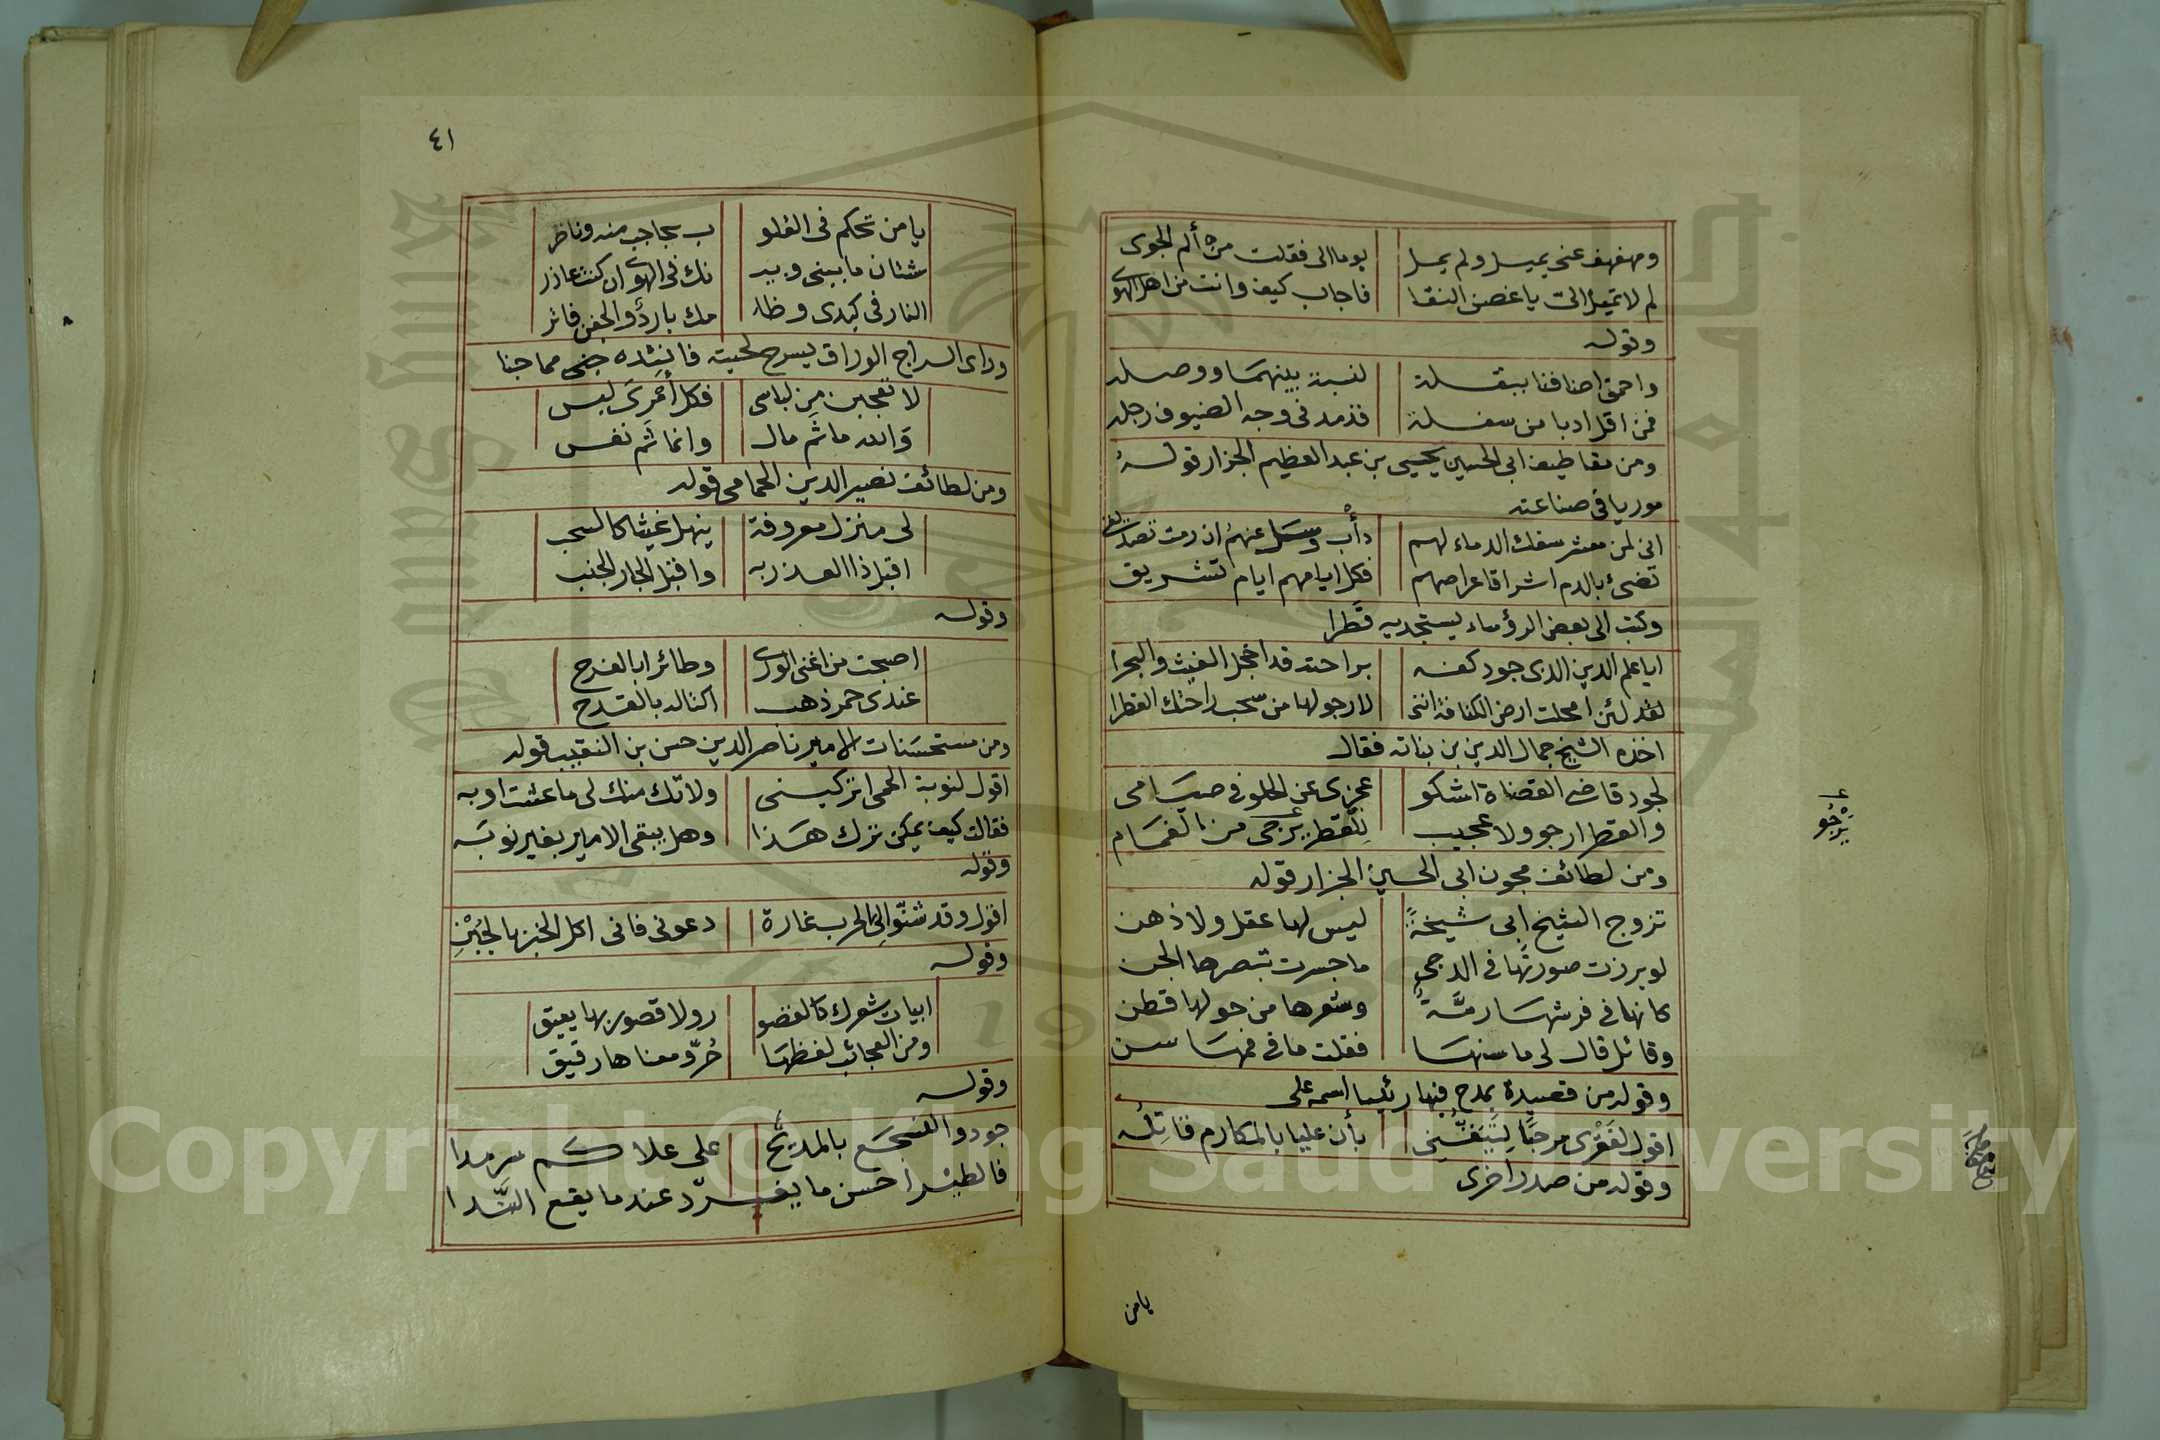 ومهفهف عنى يميل ولم يمل يوما الى فقلت من ألم الجوى
لم لا تميل الى يا غصن النقا فاجاب كيف وانت من اهل الهوى
وقوله
واحمق اضافنا ببقلة لنسبة بينهما ووصله
فمن اقل ادبا من سفلة قد مد فى وجه الضيوف رجله
ومن مقاطيع ابى الحسين يحيى بن عبد العظيم الجزار قوله
موريا فى صناعته
انى لمن معشر سفك الدماء لهم دأب وسل عنهم ان رمت تصديقى
تضئ بالدم اشراقا عراصهم فكل ايامهم ايام تشريق
وكتب الى بعض الرؤساء يستجديه قطرا
ايا علم الدين الذى جود كفه براحته قد اخجل الغيث والبحرا
لقد لئن امحلت ارض الكنافة اننى لارجو لها من سحب راحتك القطرا
اخذه الشيخ جمال الدين بن نباته فقال
لجود قاضى القضاة اشكو عجزى عن الحلو فى صيامى
والقطر ارجو ولا عجيب للقطر يرجى من الغمام
يرجو
ومن لطائف مجون ابى الحسين الجزار قوله
تزوج الشيخ ابى شيخة ليس لها عقل ولا ذهن
لو برزت صورتها فى الدجى ما جسرت تبصرها الجن
كانها فى فرشها رمة وشعرها من حولها قطن
وقائل قال لى ما سنها فقلت ما فى فمها سن
وقوله من قصيدة يمدح فيها رئيسا اسمه على
اقول لفقرى مرحبا لتيقنى بأن عليا بالمكارم قاتله
وقوله من صدر اخرى
يا من
٤١
يا من تحكم فى القلو ب بحاجب منه وناظر
شتان ما بينى وبيـ نك فى الهوى ان كنت عاذر
النار فى كبدى وظلـ مك بارد والجفن فاتر
وراى السراج الوراق يسرح لحيته فانشده
لا تعجبن من لباسى فكل أمرى لبس
والله ما ثم مال وانما ثم نفس
ومن لطائف نصير الدين الحمامى قوله
لى منزل معروفة ينهل غيثا كالسحب
اقبل ذا العذر به واقبل الجار الجنب
وقوله
اصبحت من اغنى الورى وطائرا بالفرح
عندى خمر ذهب اكتاله بالقدح
ومن مستحسنات الامير ناصر الدين حسن بن النقيب قوله
اقول لنوبة الحمى اتركينى ولا تك منك لى ما عشت اوبه
فقالت كيف يمكن ترك هذا وهل يبقى الامير بغير نوبه
وقوله
اقول وقد شنوا الى الحرب غارة دعونى فانى اكل الخبز بالجبن
وقوله
ابيات شعرك كالقصو ر ولا قصور بها يعيق
ومن العجائب لفظها حر ومعناها رقيق
وقوله
جودوا لنسجع بالمديح على علاكم سرمدا
فالطير احسن ما يغرد عندما يقع الندا
Copyright © King Saud University